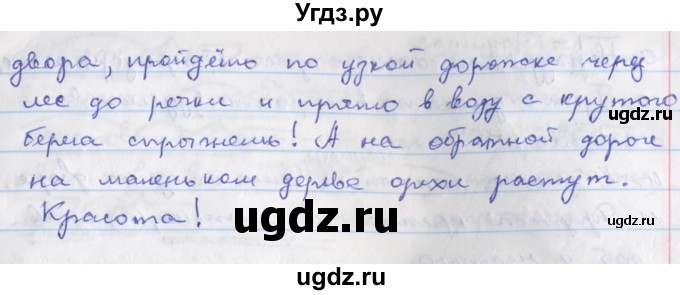 Угдз.ру
двора, пройдёшь по узкой дорожке через
лес до речки и прямо в воду с крутого
берега спрыгнешь! А на обратной дороге
на маленьком дереве орехи растут.
Красота!
ugdz.ru
ugdz.ru
ugdz.ru